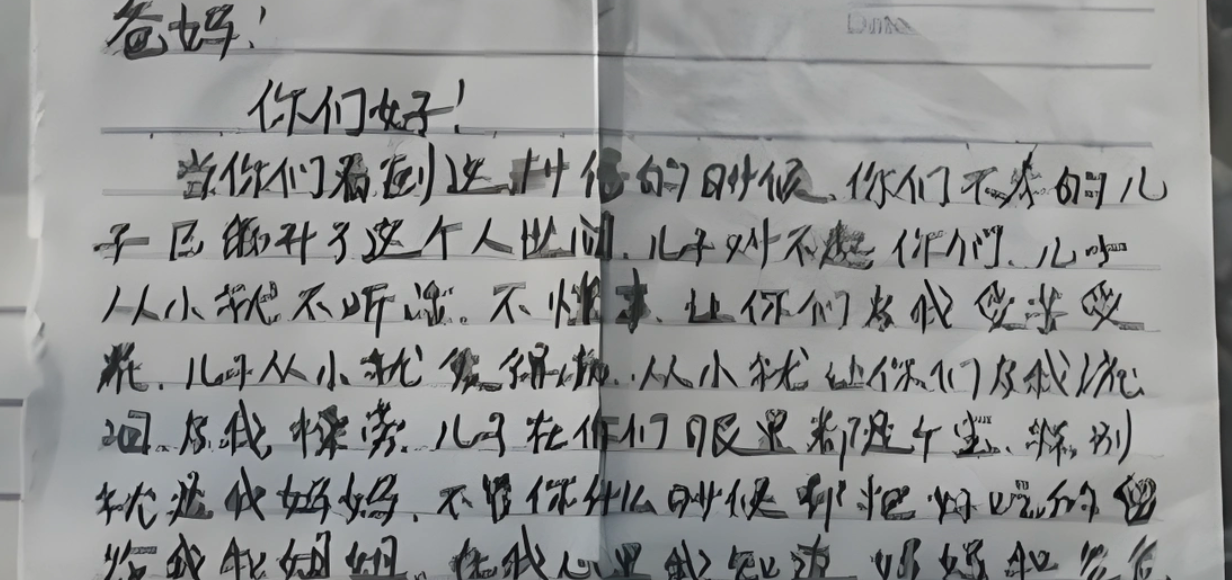 爸妈!
你们好!
当你们看到这封信的时候,你们不孝的儿
子已经离开了这个人世间,儿子对不起你们,儿子
从小就不听话,不懂事,让你们为我受苦受
累,儿子从小就,从小就让你们为我
为我操劳,儿子在你们眼里都是个宝,特别
就是我妈妈,不管你什么时候都把好吃的留
给我和姐姐,在我心里我知道,妈妈和爸爸